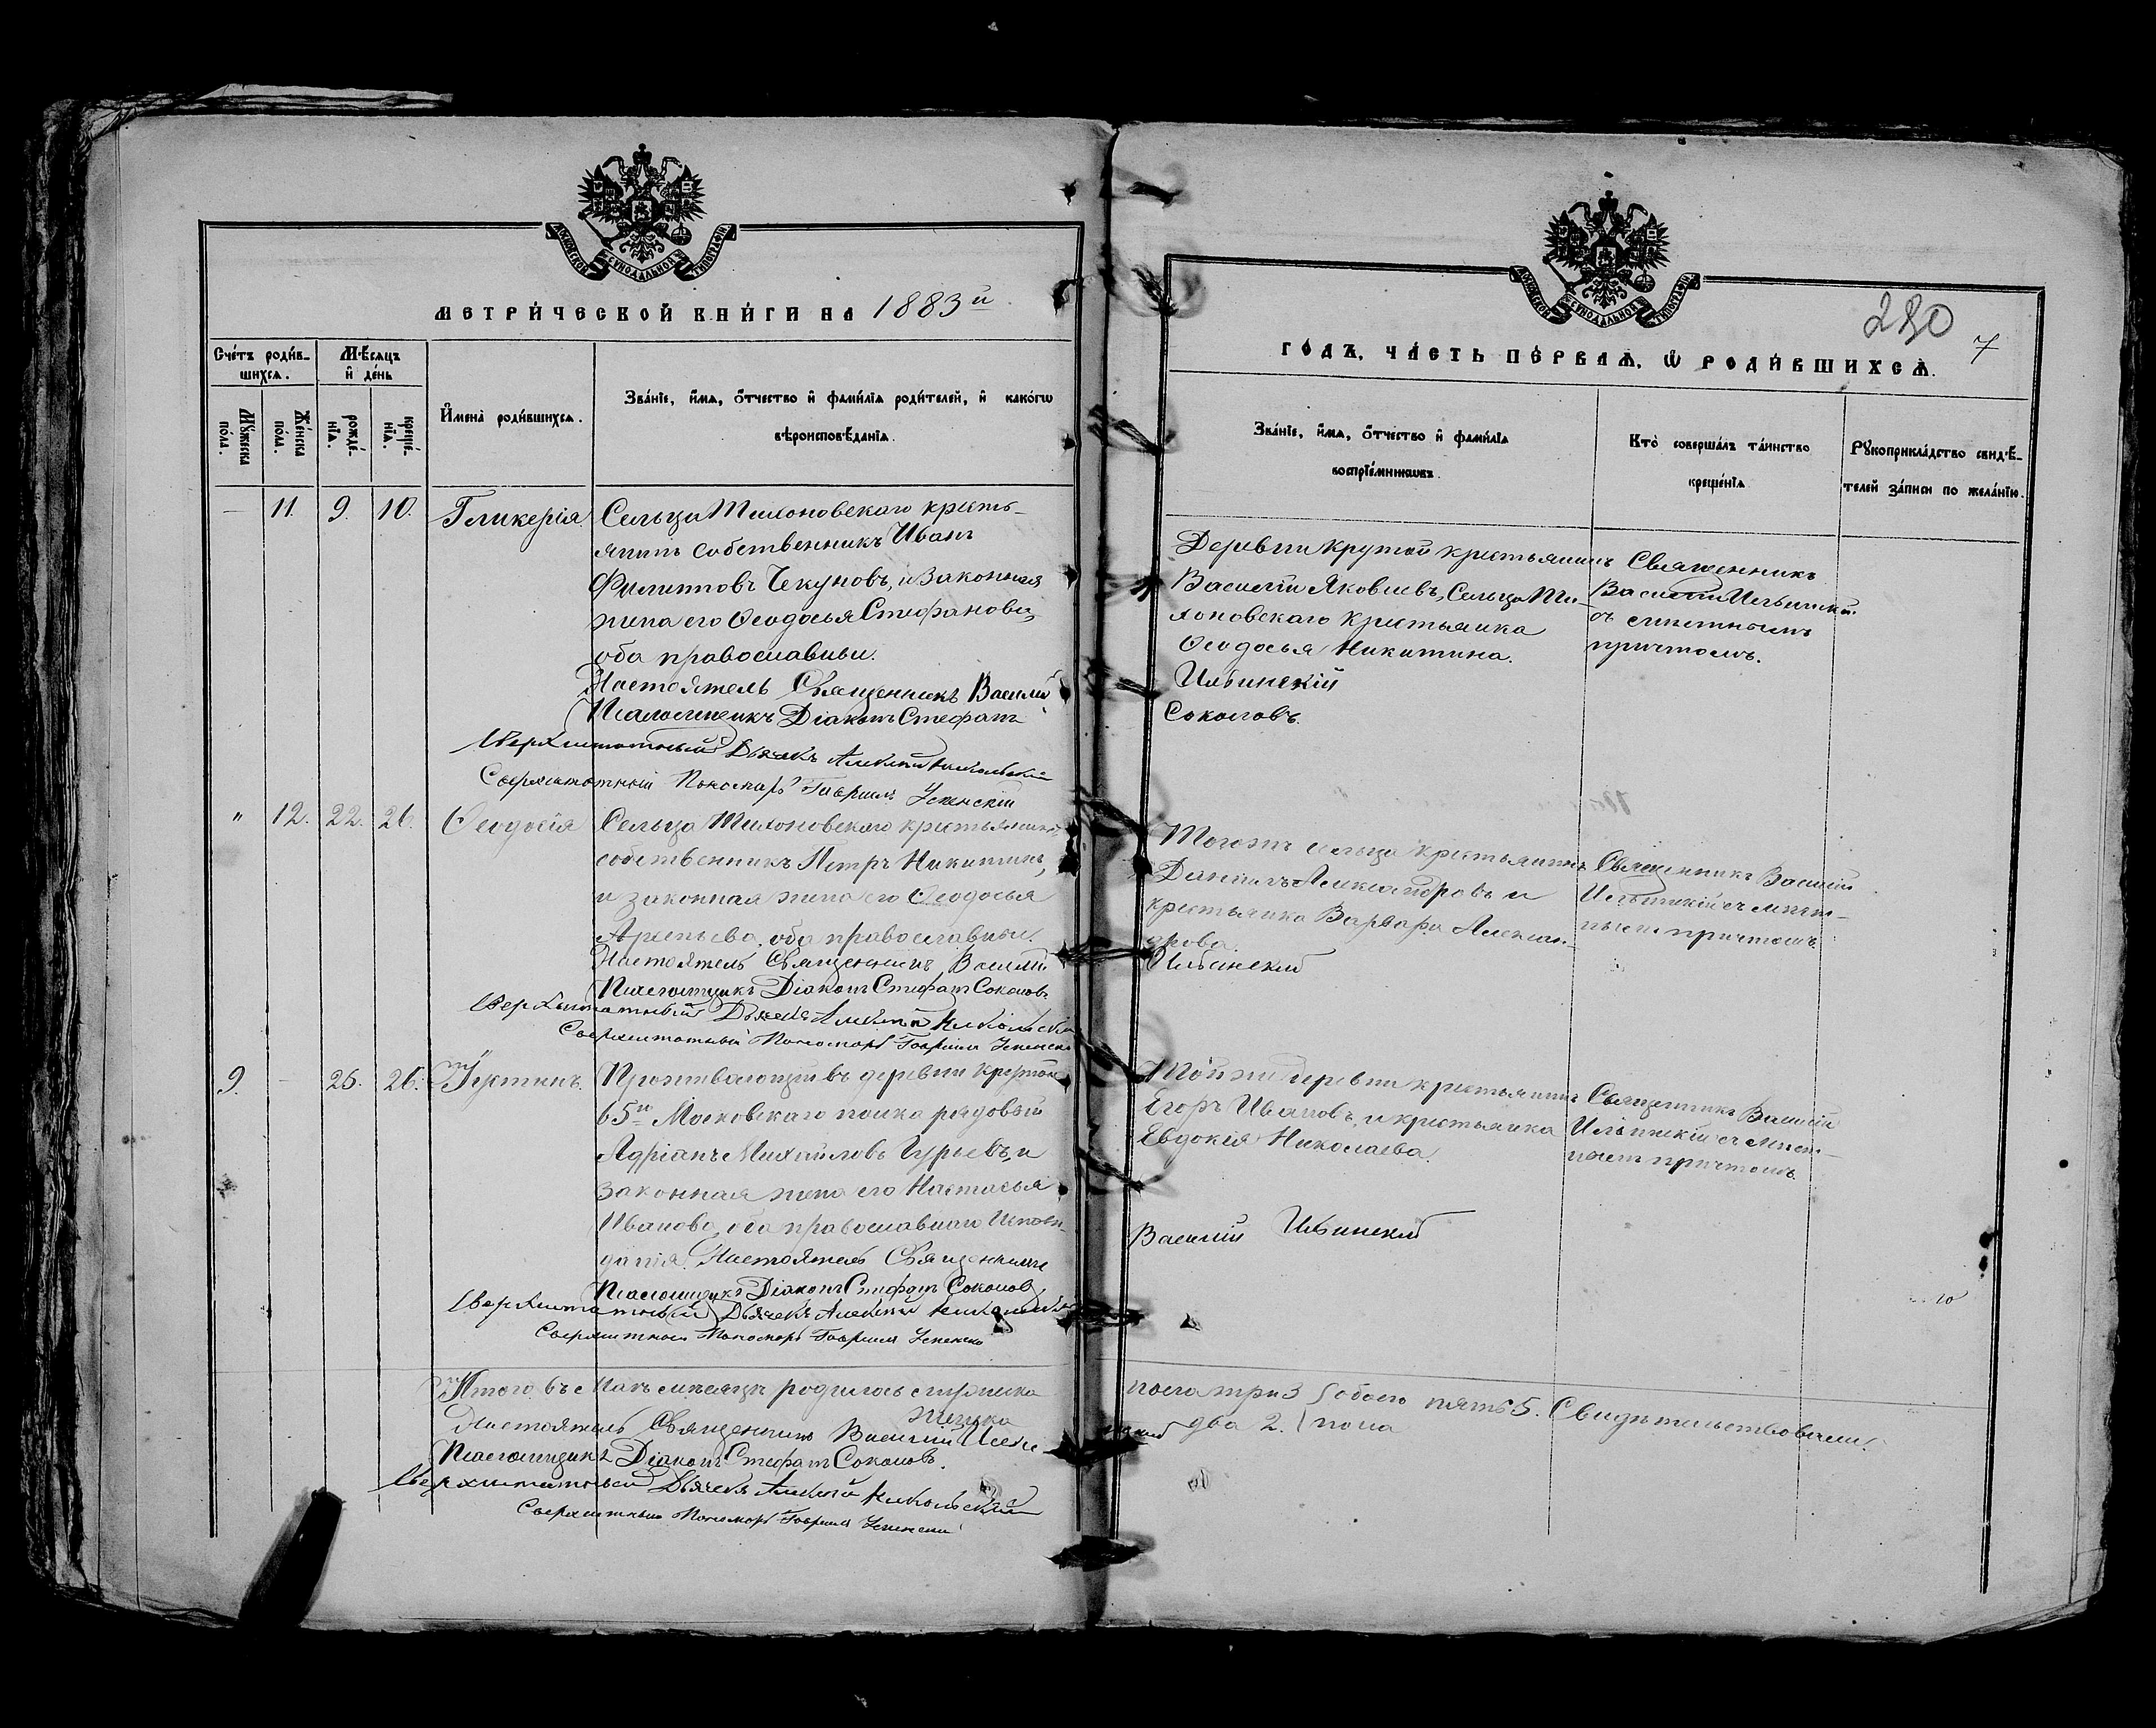 МОСКОВСКОЙ СѴНОДАЛЬНОЙ ТИПОГРАФІИ
МЕТРИ́ЧЕСКОЙ КНИ́ГИ НА 1883й
Сче́тъ роди́в-
шихся.
Мѣ́сяцъ
и҆ де́нь
Мꙋ́жеска
по́ла.
Же́нска
по́ла.
рожде́-
нїѧ.
креще́-
нїѧ.
И҆мена̀ роди́вшихсѧ.
Зва́нїе, и҆́мѧ, ѻ҆́тчество и҆ фами́лїѧ роди́телей, и҆ како́гѡ
вѣроисповѣ́данїѧ.
— 11. 9. 10. Гликерія
Сельца Тихоновскаго кресть-
янинъ собственникъ Иванъ
Филипповъ Чекуновъ, и законная
жена его Ѳеодосья Стефанова,
оба православныи.
Настоятель Священникъ Василій
Псаломщикъ Діаконъ Стефанъ
Сверхштатный Дьячекъ Алексѣй Никольскій
Сверхштатный Пономарь Гавріилъ Успенскій
" 12. 22. 26. Ѳеодосія
Сельца Тихоновскаго крестьянинъ
собственникъ Петръ Никитинъ,
и законная жена его Ѳеодосья
Арсеньева, оба православныи.
Настоятель Священникъ Василій
Псаломщикъ Діаконъ Стефанъ Соколовъ
Сверхштатный Дьячекъ Алексѣй Никольскій
Сверхштатный Пономарь Гавріилъ Успенскій
9. — 25. 26. Іустинъ.
Проживающій въ деревни Крутой
65го Московскаго полка рядовый
Адріанъ Михайловъ Гурьевъ, и
законная жена его Настасья
Иванова, оба православнаго исповѣ-
данія. Настоятель Священникъ
Псаломщикъ Діаконъ Стефанъ Соколовъ
Сверхштатный Дьячекъ Алексѣй Никольскій
Сверхштатный Пономарь Гавріилъ Успенскій
Итого въ мѣсяцѣ родилось мужска
женска
Настоятель Священникъ Василій Ильи-
Псаломщикъ Діаконъ Стефанъ Соколовъ.
Сверхштатный Дьячекъ Алексѣй Никольскій
Сверхштатный Пономарь Гавріилъ Успенскій
МОСКОВСКОЙ СѴНОДАЛЬНОЙ ТИПОГРАФІИ
280
7
ГО́ДЪ, ЧА́СТЬ ПЕ́РВАѦ, Ѡ҆ РОДИ́ВШИХСѦ.
Зва́нїе, и҆́мѧ, ѻ҆́тчество и҆ фами́лїѧ
воспрїе́мникѡвъ.
Кто̀ соверша́лъ та́инство
креще́нїѧ
Рꙋкоприкла́дство свидѣ́-
телей за́писи по жела́нїю.
Деревни Крутой крестьянинъ
Василій Яковлевъ, Сельца Ти-
хоновскаго крестьянка
Ѳеодосья Никитина.
Ильинскій
Соколовъ.
Священникъ
Василій Ильинскій
съ
причтомъ.
Тогожъ сельца крестьянинъ
Даніилъ Александровъ и
крестьянка Варвара Алексан-
дрова.
Ильинскій
Священникъ Василій
Ильинскій съ мѣст-
нымъ причтомъ.
Тойже деревни крестьянинъ
Егоръ Ивановъ, и крестьянка
Евдокія Николаева.
Василій Ильинскій
Священникъ Василій
Ильинскій съ мѣст-
нымъ причтомъ.
пола три 3 обоего пять 5. Свидѣтельствовали:
нскій два 2. пола